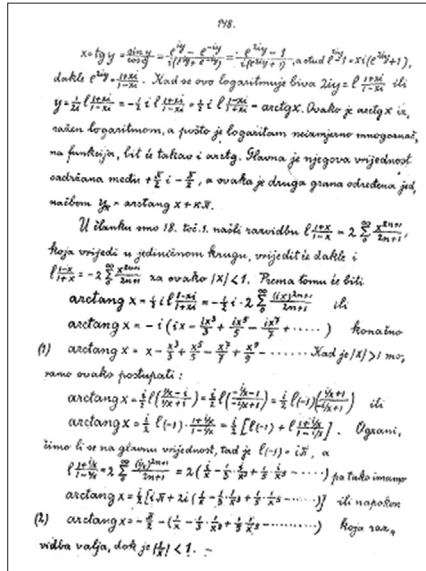 148.
x = tg y = sin y / cos y = (e^{iy} − e^{-iy}) / i(e^{iy} + e^{-iy}) = (e^{2iy} − 1) / i(e^{2iy} + 1), a stud e^{2iy} − 1 = xi(e^{2iy}+1),
dakle e^{2iy} = (1+xi)/(1−xi). Kad se ovo logaritmuje biva 2iy = l (1+xi)/(1−xi) ili
y = 1/2i l (1+xi)/(1−xi) = −½ i l (1+xi)/(1−xi) = ½ i l (1−xi)/(1+xi) = arctg x. Ovako je arctg x iz,
ražen logaritmom, a pošto je logaritam neizmjerno mnogoznač,
na funkcija, bit će takav i arctg. Glavna je njegova vrijednost
sadržana među + π/2 i − π/2, a ovaka je druga grana određena jed,
načbom yₖ = arctang x + κπ.
U članku smo 18. toč. 1. našli razvidbu l (1+x)/(1−x) = 2 Σ₀^∞ x^{2n+1}/(2n+1),
koja vrijedi u jediničnom krugu, vrijedit će dakle i
l (1−x)/(1+x) = −2 Σ₀^∞ x^{2n+1}/(2n+1) za ovako |x| < 1. Prema tomu će biti
arctang x = ½ i l (1−xi)/(1+xi) = −½ i · 2 Σ₀^∞ (ix)^{2n+1}/(2n+1) ili
arctang x = − i (ix − ix³/3 + ix⁵/5 − ix⁷/7 + ······) konačno
(1) arctang x = x − x³/3 + x⁵/5 − x⁷/7 + x⁹/9 − ······· Kad je |x| > 1 mo,
ramo ovako postupati:
arctang x = i/2 l (1/x − i)/(1/x + i) = i/2 l (i/x − 1)/(−i/x + 1) ili
arctang x = i/2 l(−1) · (1+i/x)/(1−i/x) = i/2 [l(−1) + l (1+i/x)/(1−i/x)]. Ograni,
čimo li se na glavnu vrijednost, tad je l(−1) = iπ, a
l (1+i/x)/(1−i/x) = 2 Σ₀^∞ (i/x)^{2n+1}/(2n+1) = 2 (i/x − i/3 · 1/x³ + i/5 · 1/x⁵ − ······) pa tako imamo
arctang x = i/2 [iπ + 2i (1/x − 1/3 · 1/x³ + 1/5 · 1/x⁵ − ······)] ili napokon
(2) arctang x = − π/2 − (1/x − 1/3 · 1/x³ + 1/5 · 1/x⁵ − ········) koja raz,
vidba valja, dok je |1/x| < 1. —